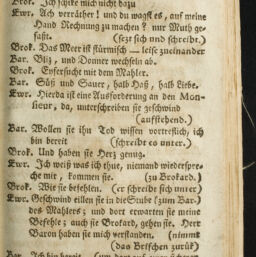 Brok. Ich schike mich nicht dazu
Ewr. Ach verräther! und du wagst es, auf meine
Hand Rechnung zu machen? nur Muth ge-
faßt. (sezt sich und schreibt.)
Brok. Das Meer ist stürmisch — leise zueinander
Bar. Bliz, und Donner wechseln ab.
Brok. Eyfersucht mit dem Mahler.
Bar. Süß und Sauer, halb Haß, halb Liebe.
Ewr. Hierda ist eine Ausforderung an den Mon-
sieur, da, unterschreiben sie geschwind
(aufstehend.)
Bar. Wollen sie ihn Tod wissen vortreflich, ich
bin bereit (schreibt es unter.)
Brok. Und haben sie Herz genug.
Ewr. Ich weiß was ich thue, niemand wiederspre-
che mir, kommen sie. (zu Brokard.)
Brok. Wie sie befehlen. (er schreibt sich unter)
Ewr. Geschwind eillen sie in die Stube (zum Bar.)
des Mahlers; und dort erwarten sie meine
Befehle; auch sie Brokard, gehen sie. Herr
Baron haben sie mich verstanden. (nimmt
das Briefchen zurük)
Bar. Ich bin bereit